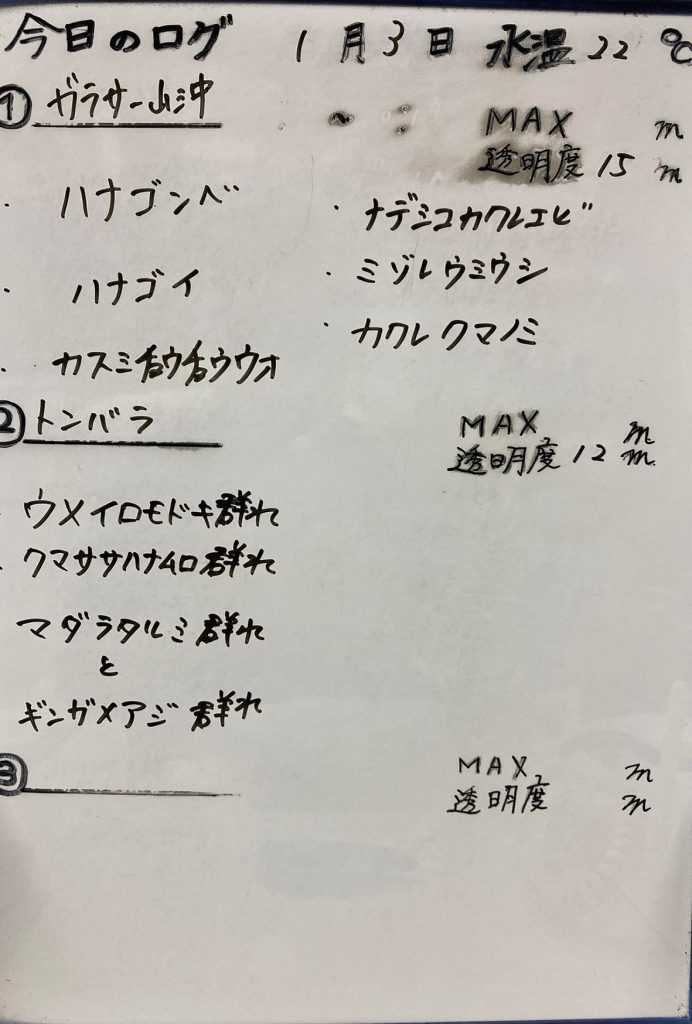 今日のログ 1月3日 水温 22 ℃
① ガラサー山沖
MAX m
透明度 15 m
・ハナゴンベ
・ナデシコカクレエビ
・ハナゴイ
・ミゾレウミウシ
・カスミチョウチョウウオ
・カクレクマノミ
② トンバラ
MAX m
透明度 12 m
・ウメイロモドキ群れ
・クマササハナムロ群れ
マダラタルミ群れ
と
ギンガメアジ群れ
③
MAX m
透明度 m